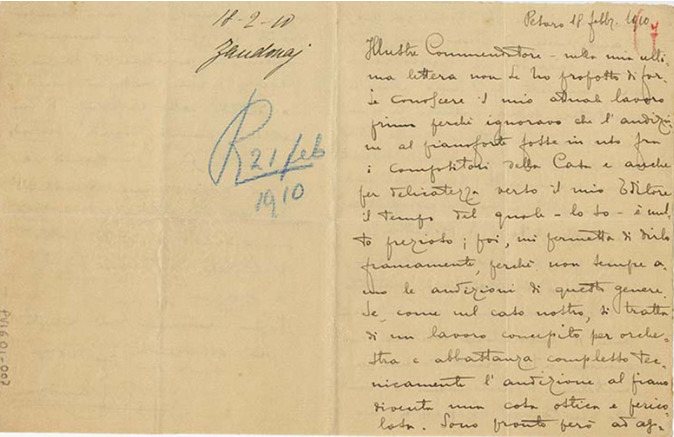 18-2-10
Zandonaj
R 21/feb
1910
Pesaro 18 febbr. 1910.
7
Illustre Commendatore - nella mia ulti-
ma lettera non Le ho proposto di far-
Le conoscere il mio attuale lavoro
prima perchè ignoravo che l'audizio-
ne al pianoforte fosse in uso fra
i compositori della Casa e anche
per delicatezza verso il mio Editore
il tempo del quale - lo so - è mol-
to prezioso; poi, mi permetta di dirlo
francamente, perchè non sempre a-
mo le audizioni di questo genere.
Se, come nel caso nostro, si tratta
di un lavoro concepito per orche-
stra e abbastanza complesso tec-
nicamente l'audizione al piano
diventa una cosa ostica e perico-
losa. Sono pronto però ad ag-